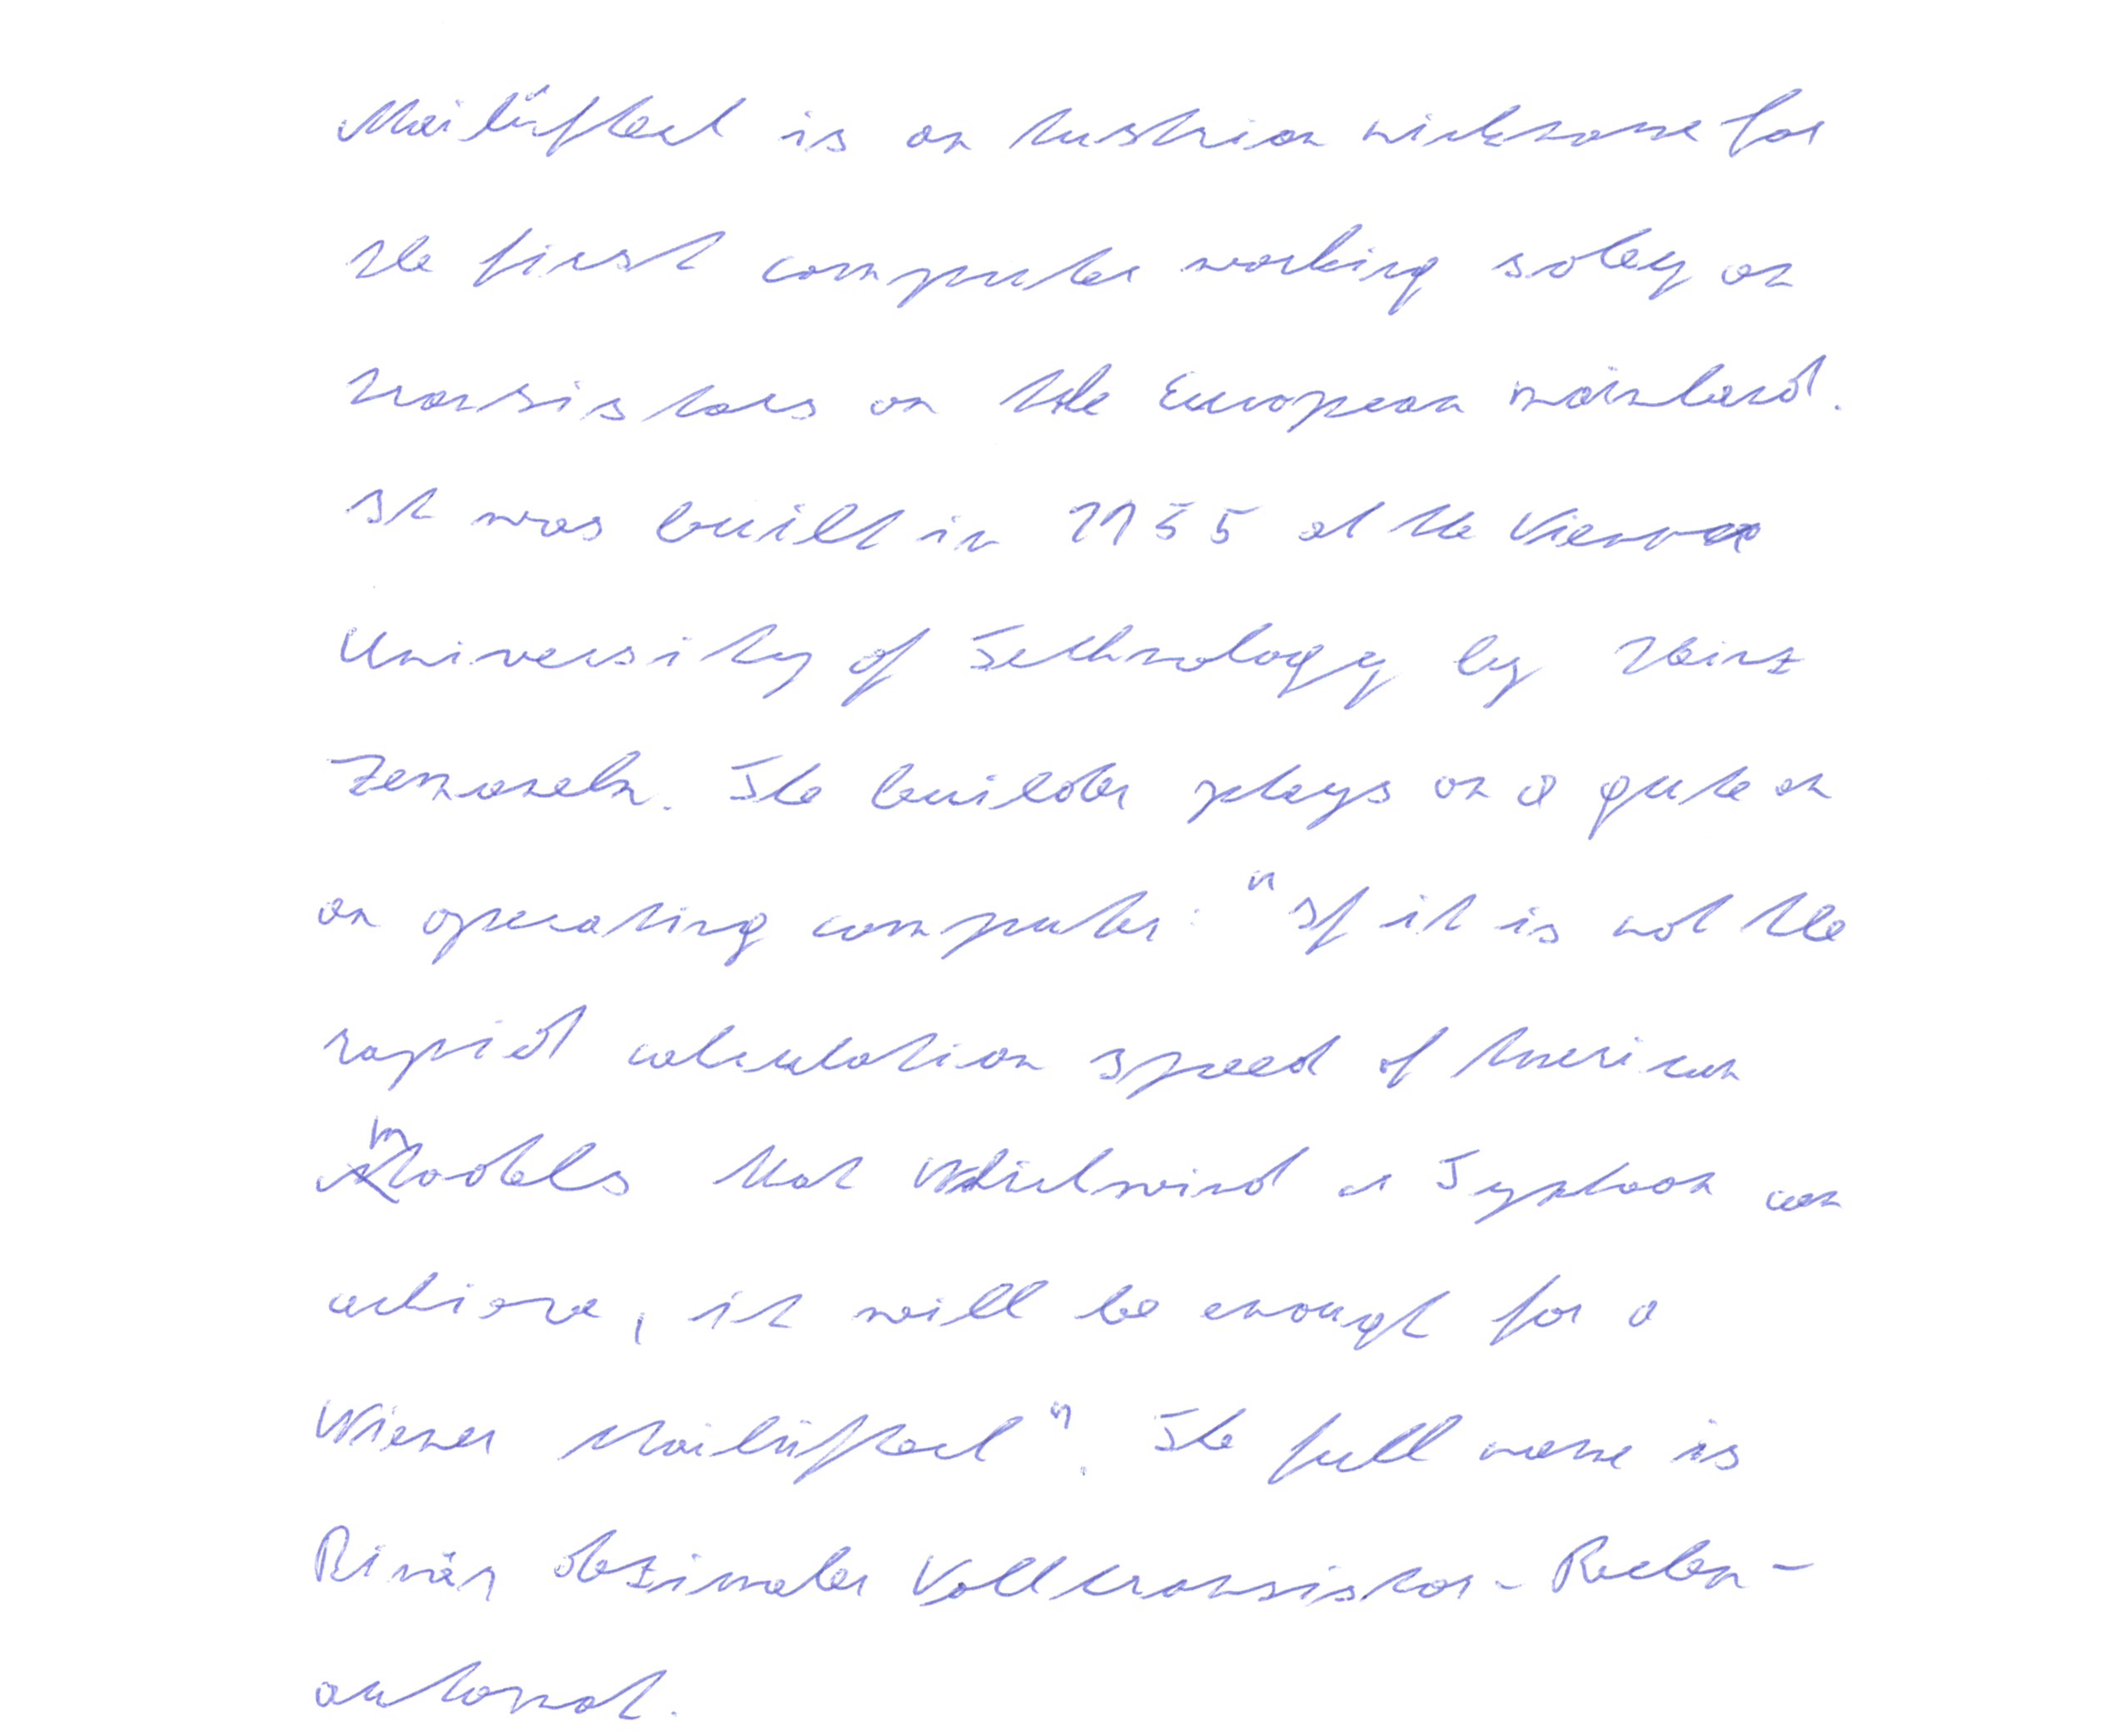 Mailüfterl is an Austrian nickname for
the first computer working soley on
transistors on the European mainland.
It was built in 1955 at the Vienna
University of Technology by Heinz
Zemanek. The builder plays on a quote on
an operating computer: "If it is not the
rapid calculation speed of American
models that Whirlwind or Typhoon can
achieve, it will be enough for a
Wiener Mailüfterl". The full name is
Binär dezimaler Volltransistor-Rechen-
automat.